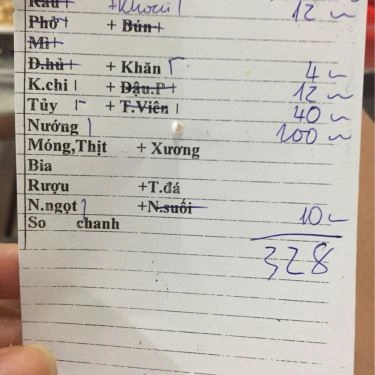 Rau +Khoai 12
Phở + Bún
Mì
Đ.hủ + Khăn 4
K.chi + Đậu.P 12
Tủy + T.Viên 40
Nướng 100
Móng,Thịt + Xương
Bia
Rượu +T.đá
N.ngọt +N.suối 10
So chanh
328